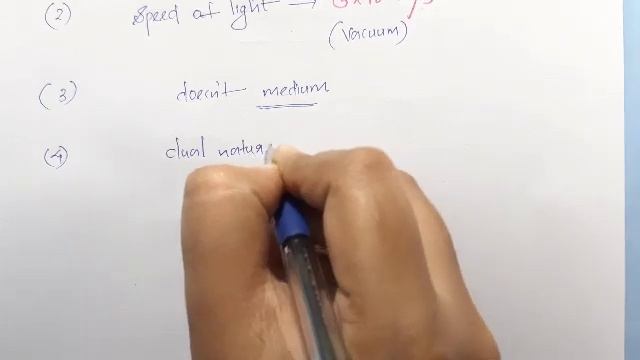 (2) Speed of light →
(Vacuum)
(3) doesn't medium
(4) dual natur